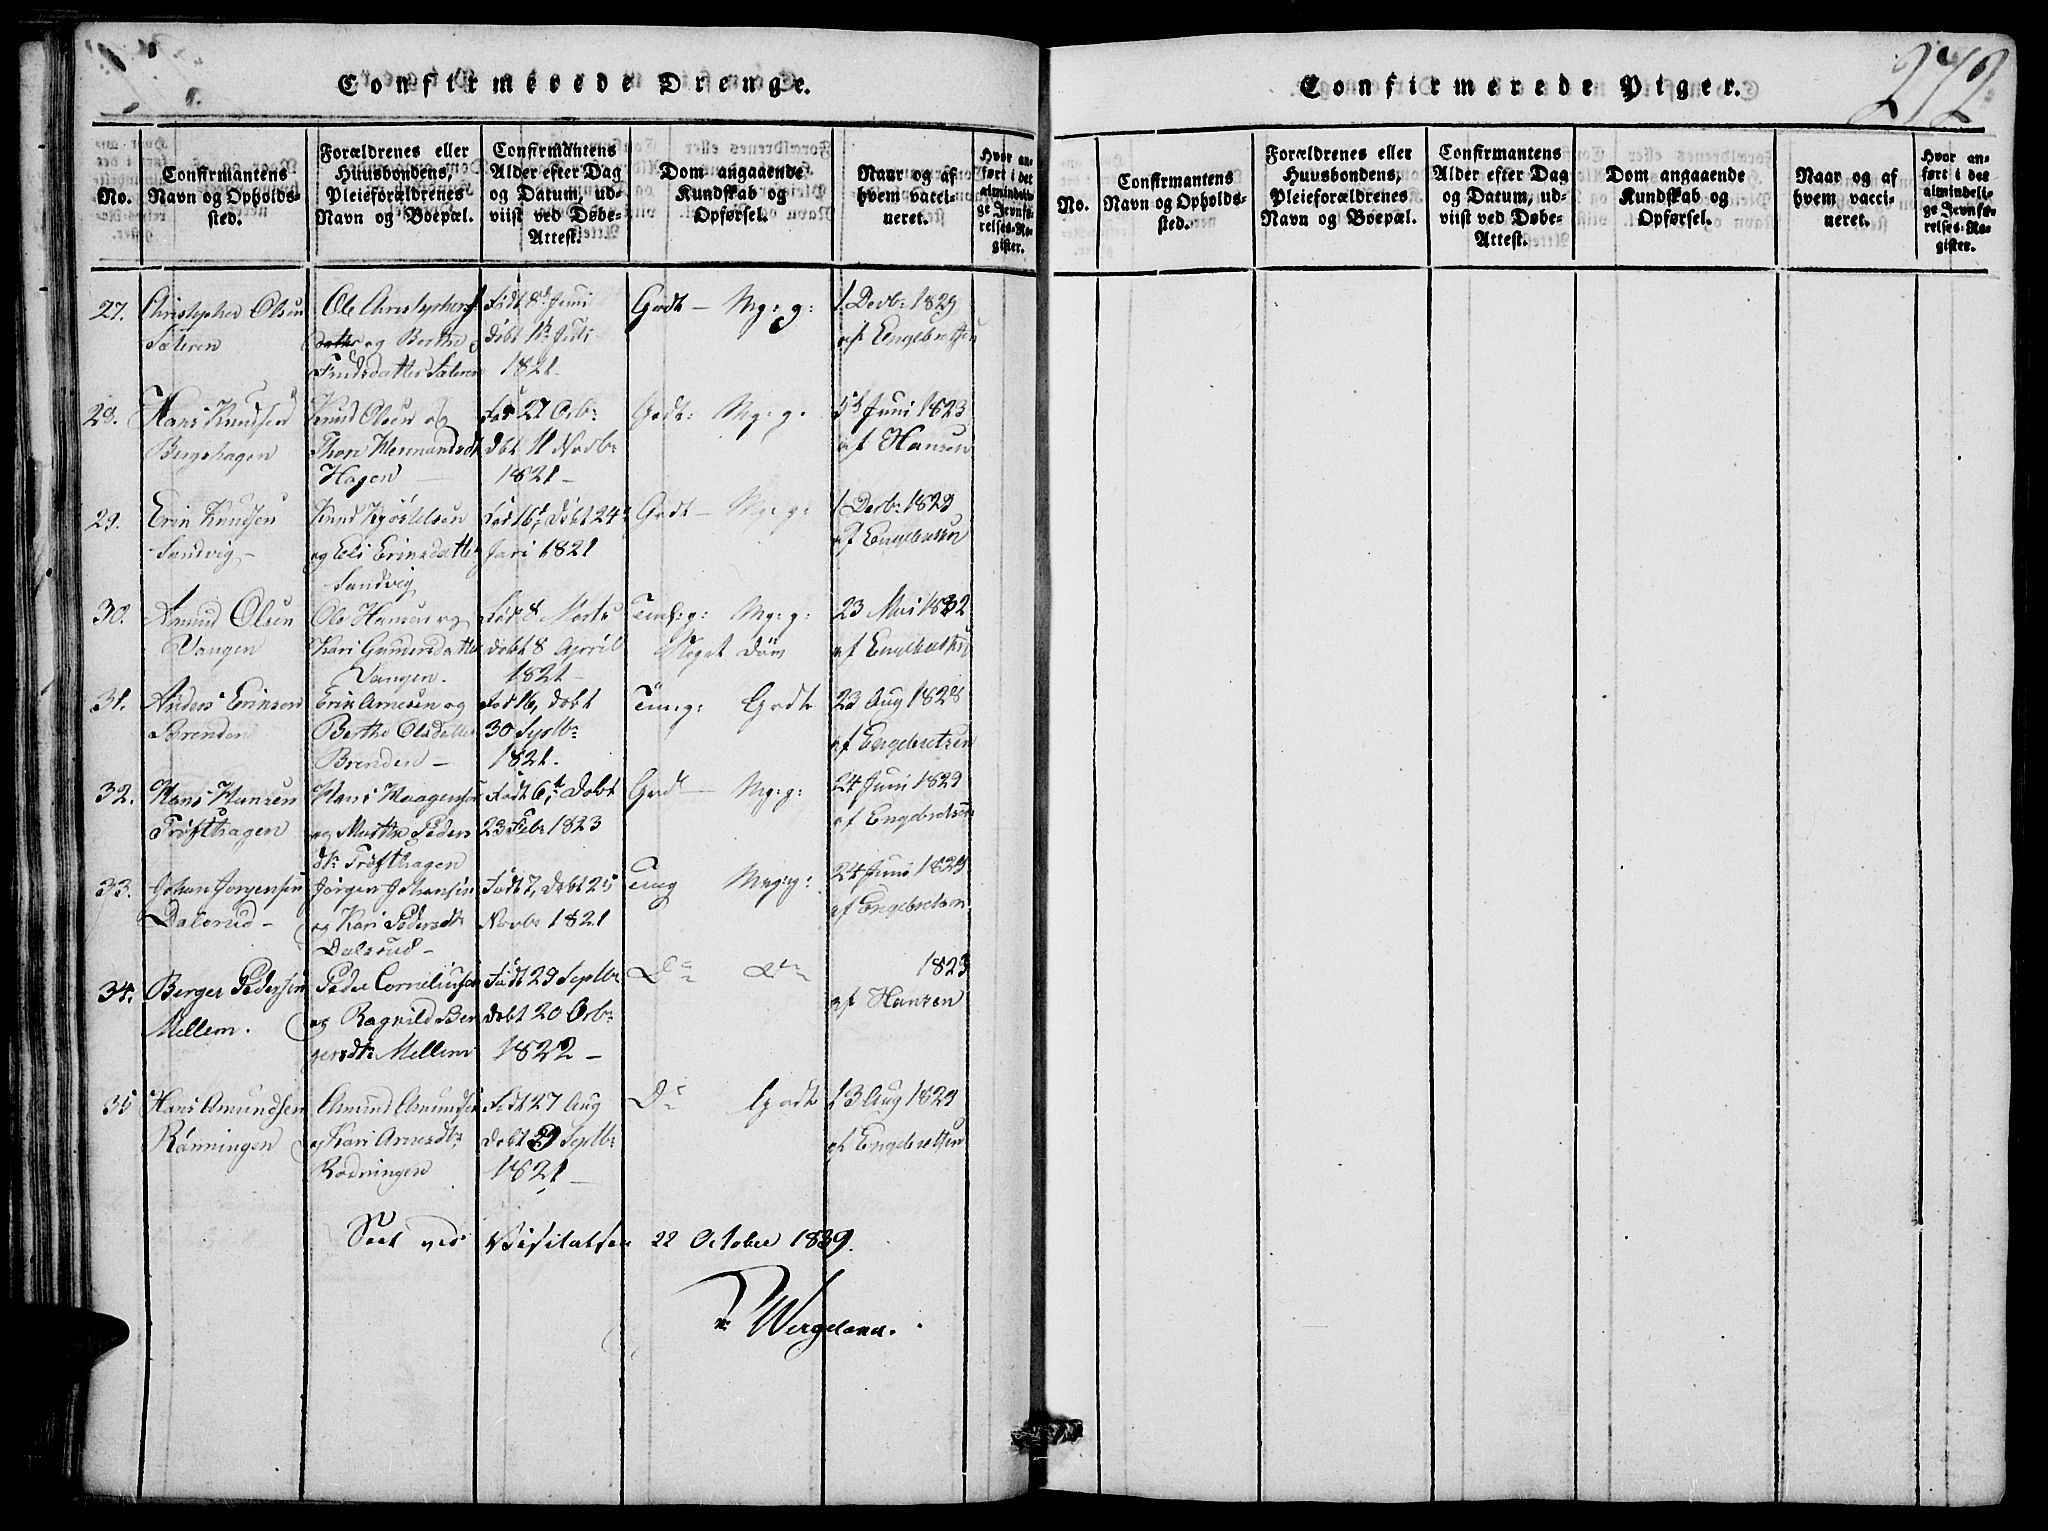 Confirmerede Drenge.
No.
Confirmantens
Navn og Opholds-
sted.
Forældrenes eller
Huusbondens,
Pleieforældrenes
Navn og Boepæl.
Confirmantens
Alder efter Dag
og Datum, ud-
viist ved Døbe-
Attest.
Dom angaaende
Kundskab og
Opførsel.
Naar og af
hvem vacci-
neret.
Hvor an-
ført i det
almindeli-
ge Jevnfø-
relses-Re-
gister.
27.
Christopher Olsen
Sæteren
Ole Christophers
og Berthe
Sæteren
Født 8de Juni
døbt 1te Juli
1821.
Godt — Mg: g:
1 Decbr 1829
af Engebretsen
28.
Hans Knudsen
Bergshagen
Knud Olsen og
Hagen —
Fød 27 Octbr
døbt 11 Novbr
1821 —
Godt: Mg: g.
Juni 1823
af Hansen
29.
Erik Knudsen
Sandvig —
Knud Kjøstelsen
og Eli Eriksdatter
Sandvig
Fød 16, døbt 24
1821
Godt — Mg: g:
1 Decbr 1829
af Engebretsen
30.
Amund Olsen
Vangen
Ole Hansen og
Kari Gundersdatter
Vangen.
Fød 8 Marts
døbt 8 April
1821 —
Mg: g:
Meget
23 Mai 1832
af Engebretsen
31.
Anders Eriksen
Brenden
Erik Arnesen og
Berthe Olsdatter
Brenden —
Fød 16, døbt
30 Septbr
1821.
Godt
23 Aug 1828
af Engebretsen
32.
Hans Hansen
Trøfthagen
Hans Haagensen
og Marthe Peders
dtr Trøfthagen
Født 6te, døbt
23 Febr 1823
Godt — Mg: g:
24 Juni 1829
af Engebretsen
33.
Johan Jørgensen
Dalsrud —
Jørgen Johansen
og Kari Pedersdtr
Dalsrud —
Født 7, døbt 25
Novbr 1821
Mg: g:
24 Juni 1829
af Engebretsen
34.
Berger Pedersen
Mellem.
Peder Corneliusen
og Ragnild Ber
gersdtr Mellem
Født 29 Septbr
døbt 20 Octbr
1822 —
Do Do
1823
af Hansen
35
Hans Amundsen
Rønningen
Amund Amundsen
og Kari Arnesdtr
Rødningen
Født 27 Aug
døbt 29 Septbr
1821 —
Do Godt
13 Aug 1829
af Engebretsen
Seet ved Visitatsen 22 October 1839.
N. Wergeland.
Confirmerede Piger.
272
No.
Confirmantens
Navn og Opholds-
sted.
Forældrenes eller
Huusbondens,
Pleieforældrenes
Navn og Boepæl.
Confirmantens
Alder efter Dag
og Datum, ud-
viist ved Døbe-
Attest.
Dom angaaende
Kundskab og
Opførsel.
Naar og af
hvem vacci-
neret.
Hvor an-
ført i det
almindeli-
ge Jevnfø-
relses-Re-
gister.